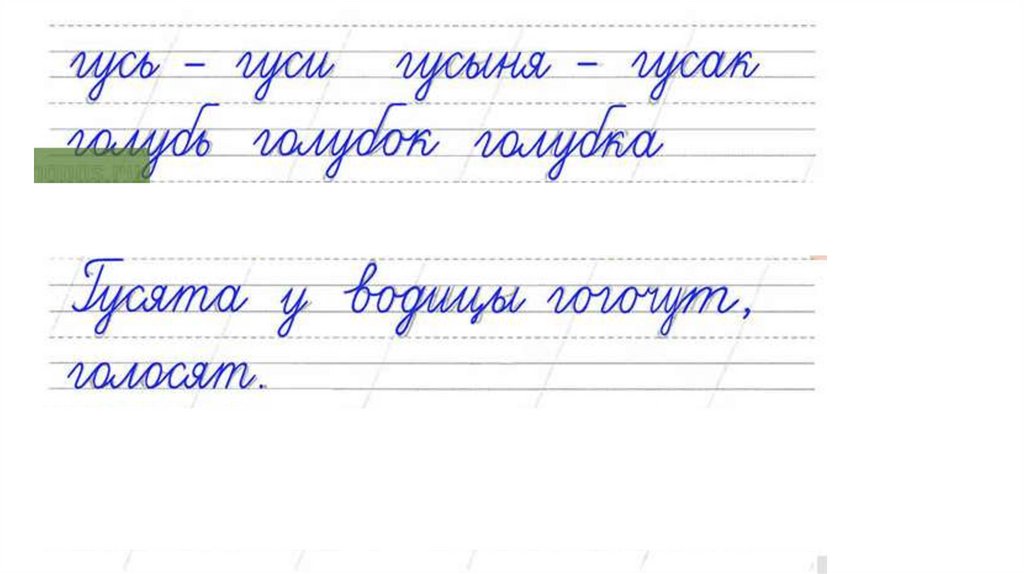 гусь – гуси гусыня – гусак
голубь голубок голубка
Гусята у водицы гогочут,
голосят.